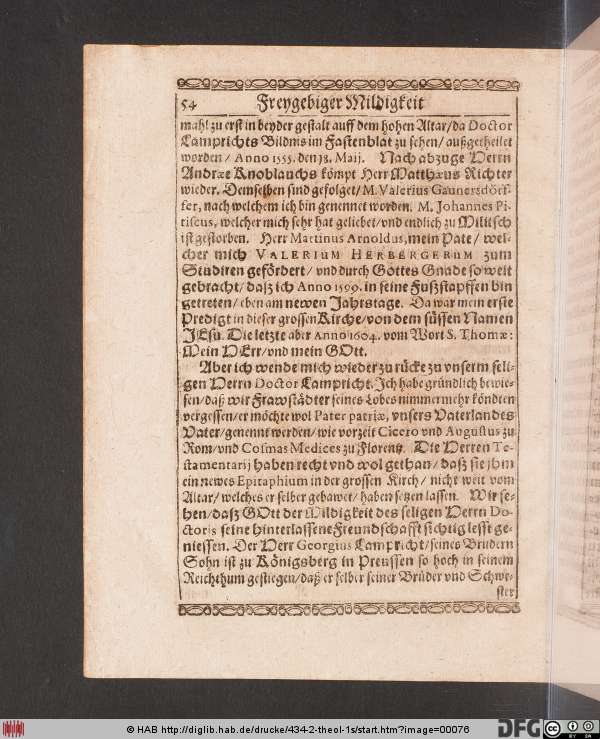 54 Freygebiger Mildigkeit
mahl zu erst in beyder gestalt auff dem hohen Altar/da Doctor
Camprichts Bildnis im Fastenblat zu sehen/außgetheilet
worden/ Anno 1555. den 18. Maij. Nach abzuge Herrn
Andræ Knoblauchs kömpt Herr Matthæus Richter
wieder. Demselben sind gefolget/ M. Valerius Gaunersdörf-
fer, nach welchem ich bin genennet worden. M. Johannes Pi-
tiscus, welcher mich sehr hat geliebet/vnd endlich zu Militsch
ist gestorben. Herr Martinus Arnoldus, mein Pate/ wel-
cher mich VALERIUM HERBERGERUM zum
Studiren gefördert/ vnd durch Gottes Gnade so weit
gebracht/ daß ich Anno 1599. in seine Fußstapffen bin
getreten/ eben am newen Jahrstage. Da war mein erste
Predigt in dieser grossen Kirche/von dem süssen Namen
JEsu. Die letzte aber Anno 1604. vom Wort S. Thomæ:
Mein HErr/vnd mein GOtt.
Aber ich wende mich wieder zu rücke zu vnserm seli-
gen Herrn Doctor Campricht. Ich habe gründlich bewie-
sen/daß wir Frawstädter seines Lobes nimmermehr köndten
vergessen/er möchte wol Pater patriæ, vnsers Vaterlandes
Vater/genennt werden/ wie vorzeit Cicero vnd Augustus zu
Rom/vnd Cosmas Medices zu Florentz. Die Herren Te-
stamentarij haben recht vnd wol gethan/ daß sie jhm
ein newes Epitaphium in der grossen Kirch/ nicht weit vom
Altar/ welches er selber gebawet/ haben setzen lassen. Wir se-
hen/daß GOtt der Mildigkeit des seligen Herrn Do-
ctoris seine hinterlassene Freundschafft sichtig lesst ge-
niessen. Der Herr Georgius Campricht/seines Brudern
Sohn ist zu Königsberg in Preussen so hoch in seinem
Reichthum gestiegen/daß er selber seiner Brüder vnd Schwe-
ster
© HAB http://diglib.hab.de/drucke/434-2-theol-1s/start.htm?image=00076
DFG
CC BY SA